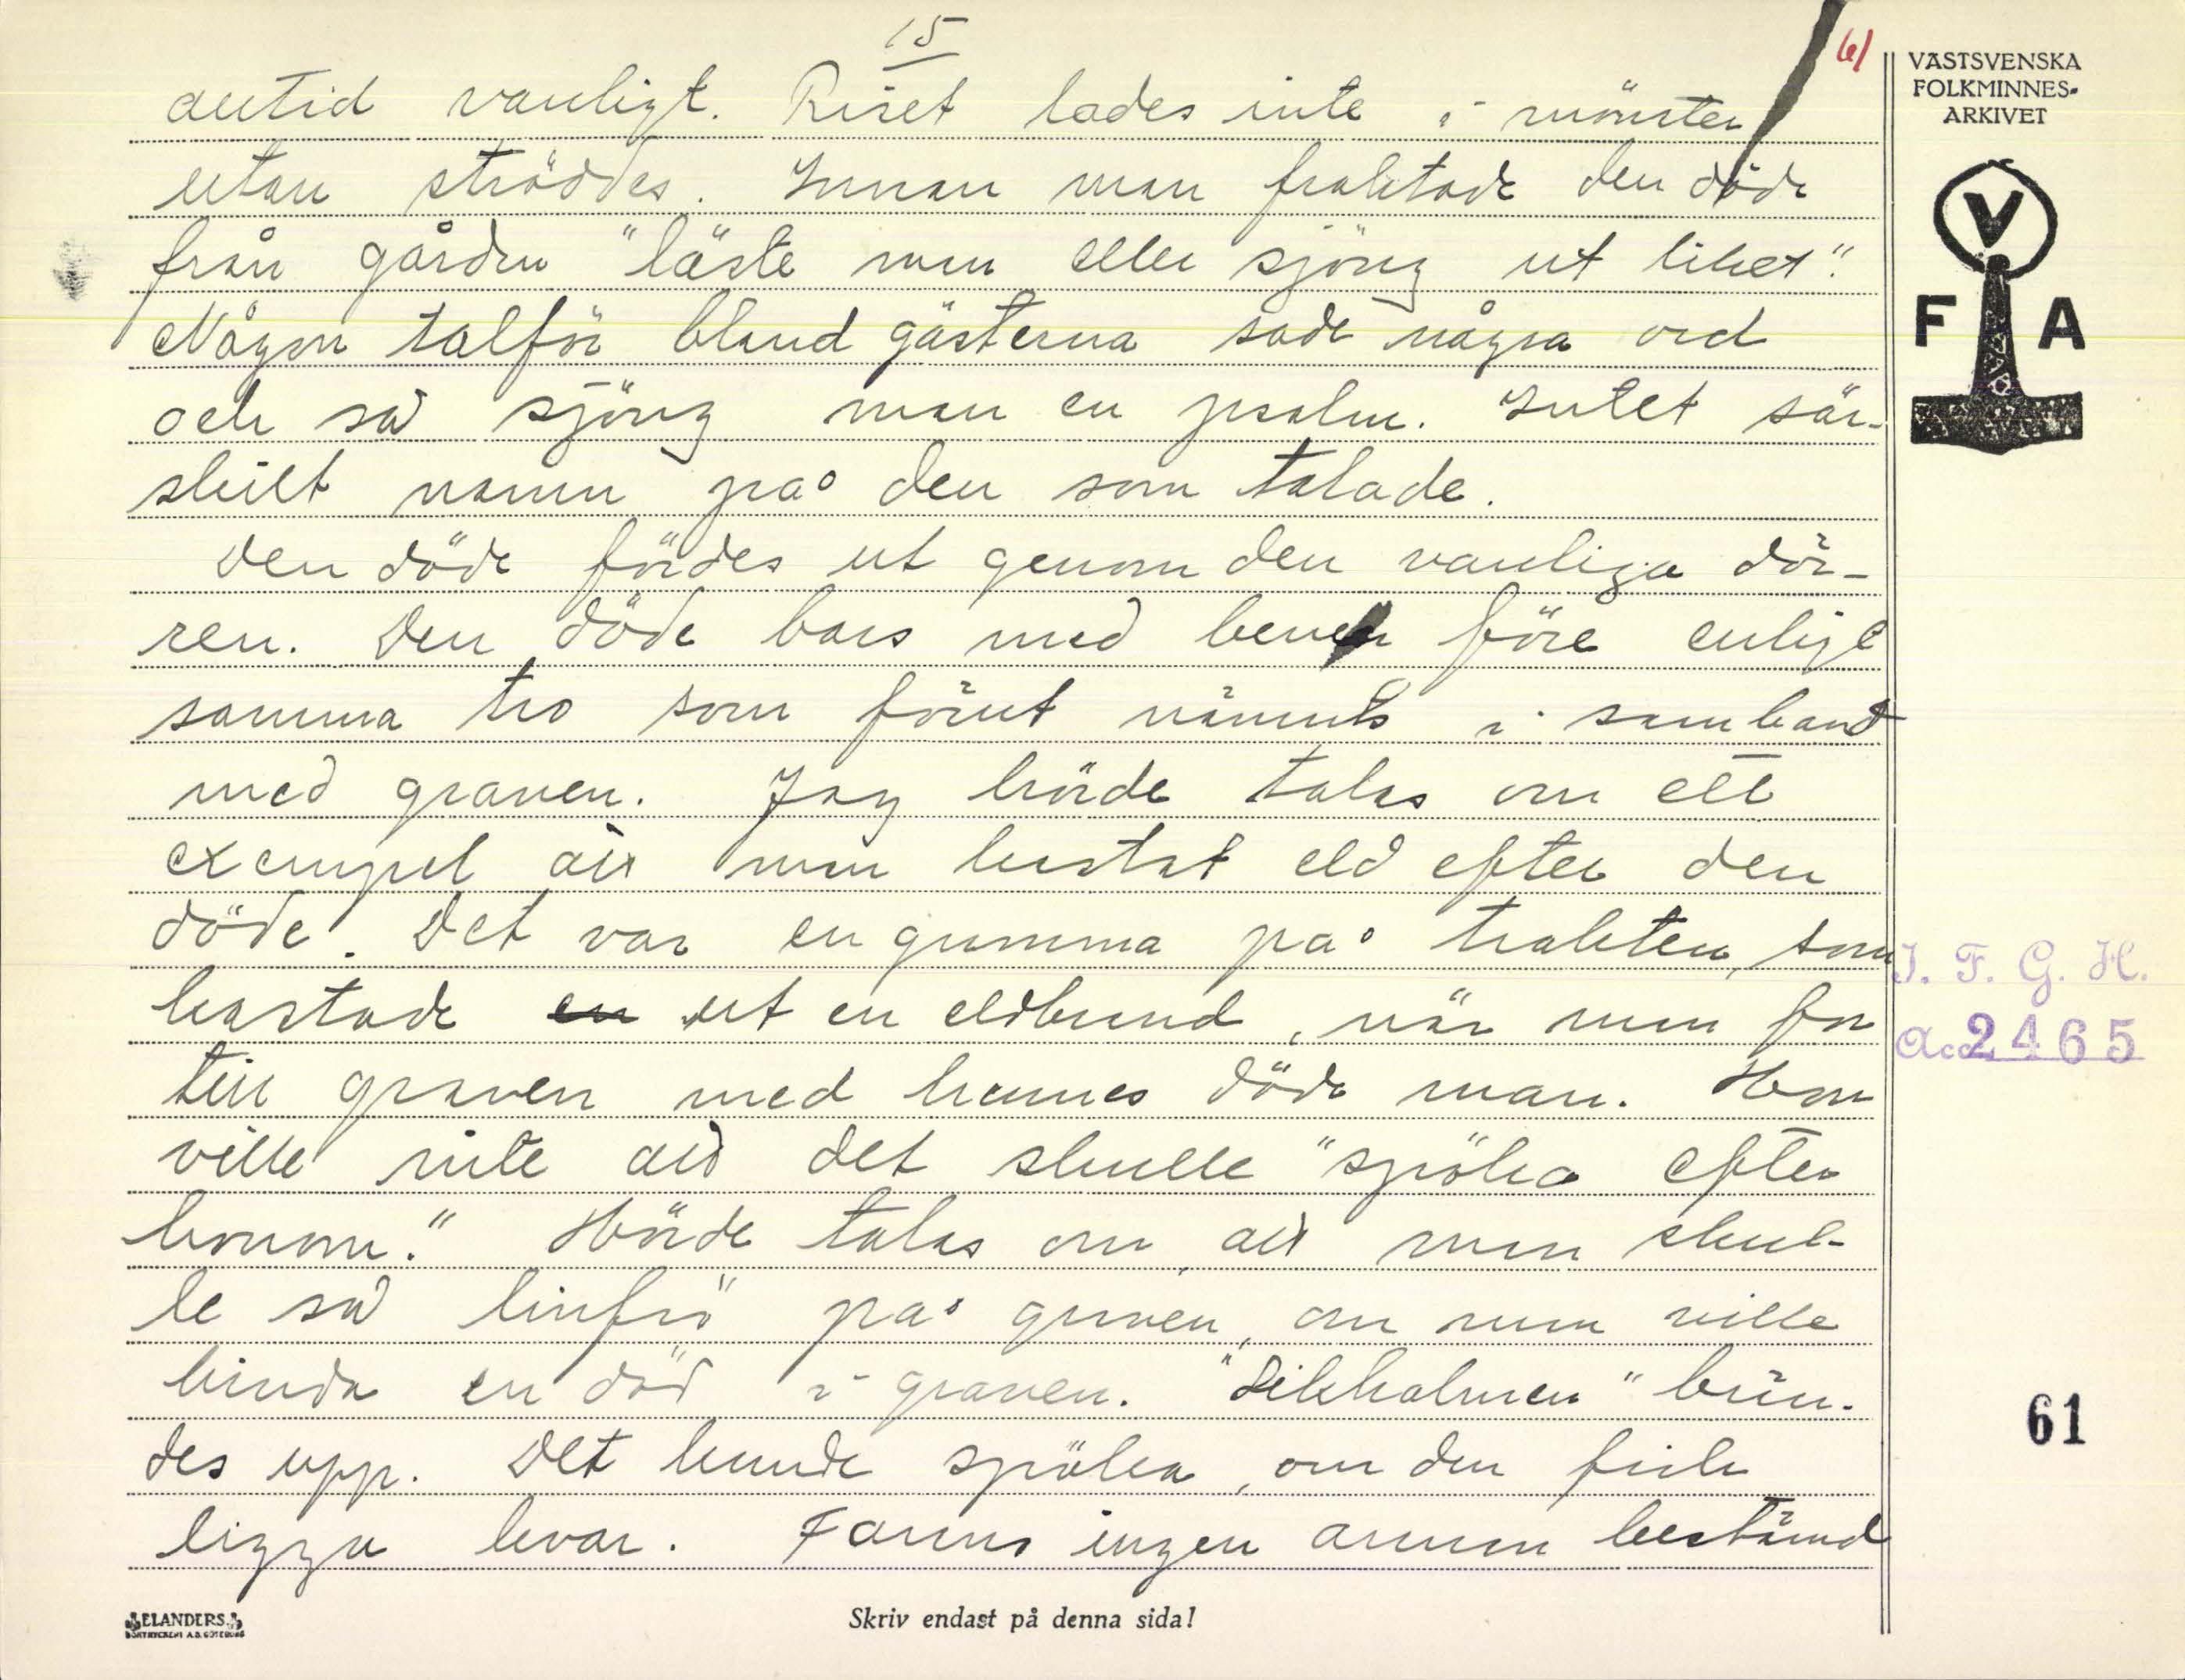 15
61
alltid vanligt. Riset lades inte i mönster
utan ströddes. Innan man fraktade den döde
från gården "läste man eller sjöng ut liket".
Någon talför bland gästerna sade några ord
och så sjöng man en psalm. Intet sär-
skilt namn på den som talade.
Den döde fördes ut genom den vanliga dör-
ren. Den döde bars med benen före enligt
samma tro som förut nämnts i samband
med graven. Jag hörde talas om ett
exempel att man kastat eld efter den
döde. Det var en gumma på trakten, som
kastade en ut en eldbrand, när man for
till graven med hennes döde man. Hon
ville inte att det skulle "spöka efter
honom." Hörde talas om, att man skul-
le så linfrö på graven, om man ville
binda en död i graven. "Likhalmen" brän-
des upp. Det kunde spöka, om den fick
ligga kvar. Fanns ingen annan bestämd
VÄSTSVENSKA
FOLKMINNES-
ARKIVET
V
F A
I. F. G. H.
Acc. 2465
61
ELANDERS
BOKTRYCKERI A.B. GÖTEBORG
Skriv endast på denna sida!